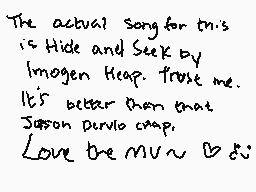 The actual song for this
is Hide and Seek by
Imogen Heap. Trust me.
It's better than that
Jason Derulo crap.
Love the MV~ ♡ ♫